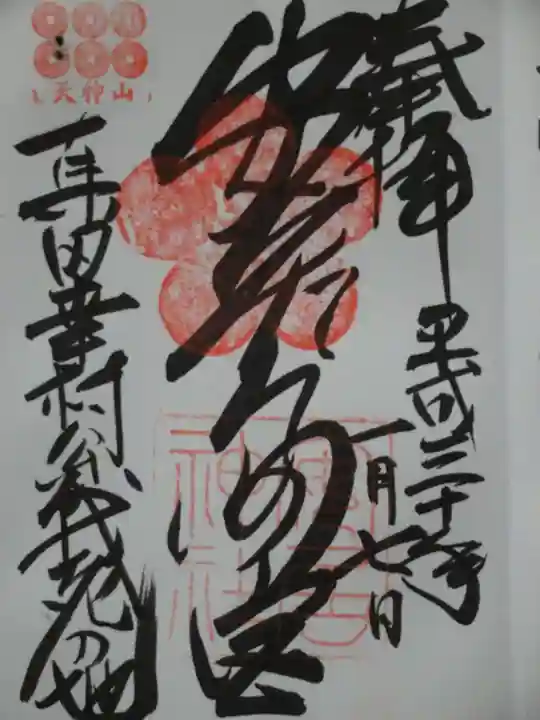 奉拝
平成三十年
一月七日
安居神社
天神山
真田幸村公戦死の地